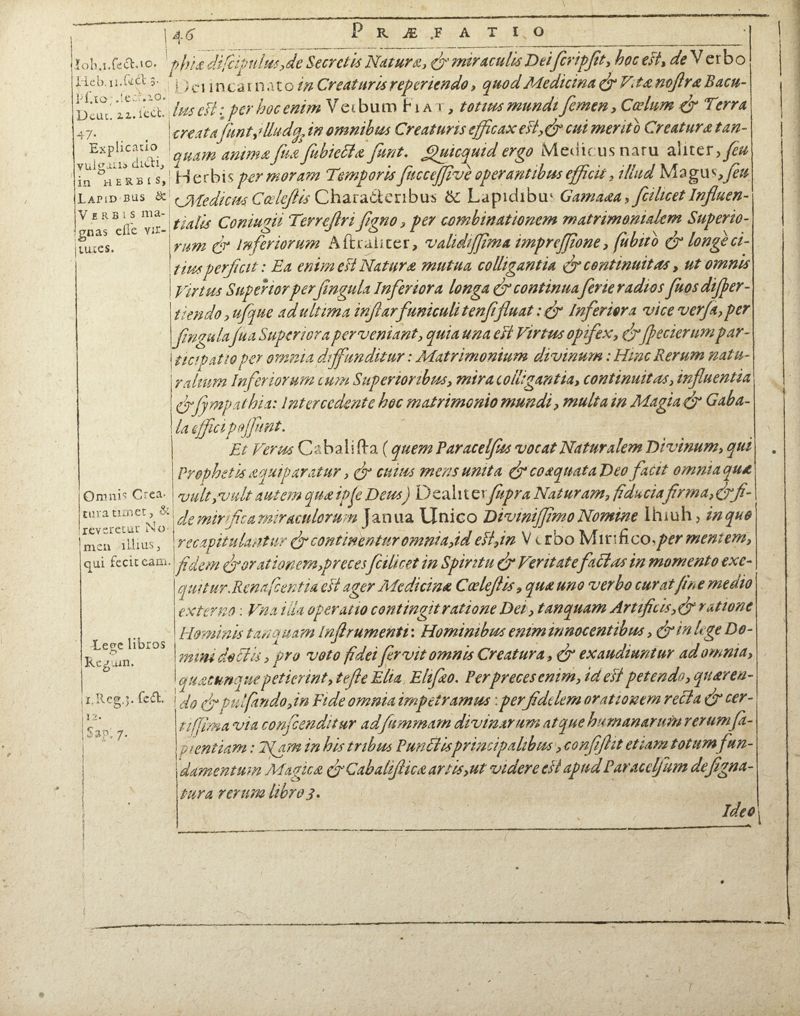 46
PRÆFATIO
phiæ discipulus, de Secretis Naturæ, & miraculis Dei scripsit, hoc est, de Verbo
Dei incarnato in Creaturis reperiendo, quod Medicina & Vitæ nostræ Bacu-
lus est: per hoc enim Verbum FIAT, totius mundi semen, Cœlum & Terra
creata sunt, illudq; in omnibus Creaturis efficax est, & cui meritò Creaturæ tan-
quam animæ suæ subiectæ sunt. Quicquid ergo Medicus natu aliter, seu
Herbis per moram Temporis successivè operantibus efficit, illud Magus, seu
Medicus Cœlestis Characteribus & Lapidibus Gamaæa, scilicet Influen-
tialis Coniugii Terrestri signo, per combinationem matrimonialem Superio-
rum & Inferiorum Astraliter, validissima impressione, subitò & longè ci-
tius perficit: Ea enim est Naturæ mutua colligantia & continuitas, ut omnis
Virtus Superior per singula Inferiora longa & continua serie radios suos disper-
tiendo, usque ad ultima instar funiculi tensi fluat: & Inferiora vice versa, per
singula sua Superiora perveniant, quia una est Virtus opifex, & specierum par-
ticipatio per omnia diffunditur: Matrimonium divinum: Hinc Rerum natu-
ralium Inferiorum cum Superioribus, mira colligantia, continuitas, influentia
& sympathia: Intercedente hoc matrimonio mundi, multa in Magia & Gaba-
la effici possunt.
Et Verus Cabalista (quem Paracelsus vocat Naturalem Divinum, qui
Prophetis æquiparatur, & cuius mens unita & coæquata Deo facit omnia quæ
vult, vult autem quæ ipse Deus) Dealiter supra Naturam, fiducia firma, & fi-
de mirifica miraculorum Janua Unico Divinissimo Nomine Ihsuh, in quo
recapitulantur & continentur omnia, id est, in Verbo Mirifico, per mentem,
fidem & orationem, preces scilicet in Spiritu & Veritate factas in momento exe-
quitur. Renascentia est ager Medicinæ Cœlestis, quæ uno verbo curat sine medio
externo: Vna illa operatio contingit ratione Dei, tanquam Artificis, & ratione
Hominis tanquam Instrumenti: Hominibus enim innocentibus, & in lege Do-
mini doctis, pro voto fidei servit omnis Creatura, & exaudiuntur ad omnia,
quæcunque petierint, teste Elia Elisæo. Per preces enim, id est petendo, quæren-
do & pulsando, in Fide omnia impetramus: per fidelem orationem recta & cer-
tissima via conscenditur ad summam divinarum atque humanarum rerum sa-
pientiam: Nam in his tribus Punctis principalibus, consistit etiam totum fun-
damentum Magicæ & Cabalisticæ artis, ut videre est apud Paracelsum de signa-
tura rerum libro 3.
Ideo
Iob. 1. sect. 10.
Heb. 11. sect 3.
Deut. 22. sect.
47.
Explicatio
vulgaris dicti,
in HERBIS,
LAPIDIBUS &
VERBIS ma-
gnas esse vir-
tutes.
Omnis Crea-
tura timet, &
reveretur No-
men illius,
qui fecit eam.
Lege libros
Regum.
1. Reg. 3. sect.
12.
Sap. 7.